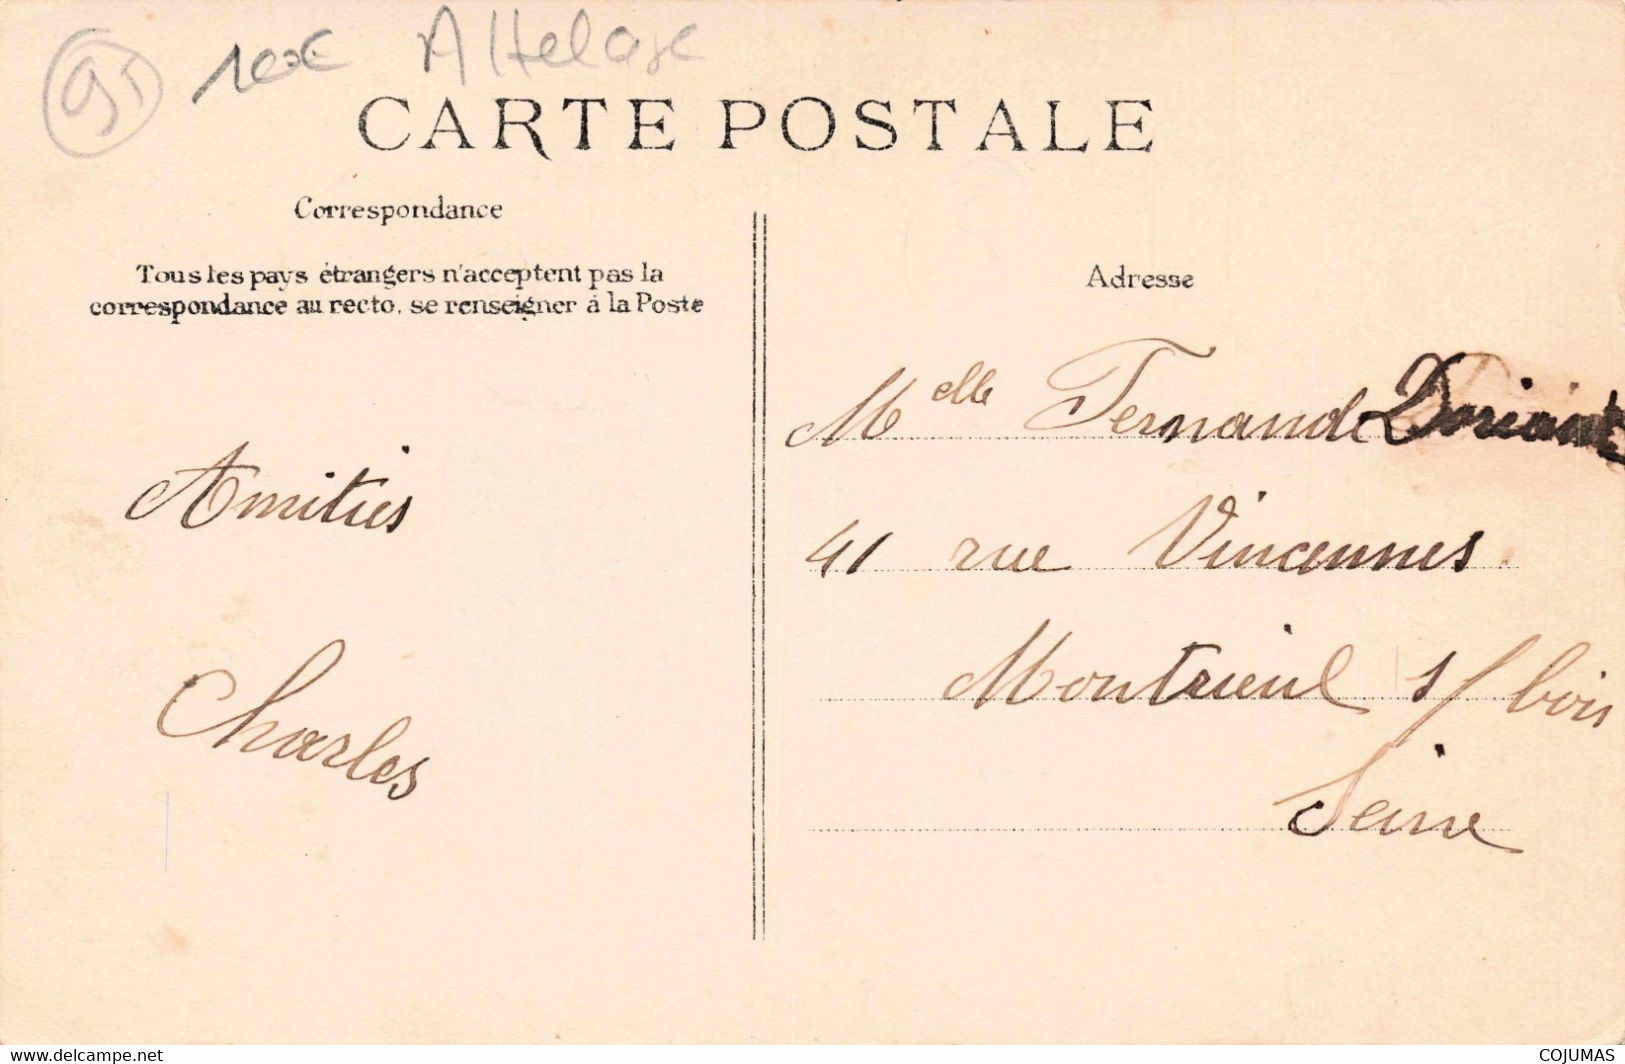 95 10€ Attelage
CARTE POSTALE
Correspondance
Tous les pays étrangers n'acceptent pas la
correspondance au recto, se renseigner à la Poste
Amitiés
Charles
Adresse
Melle Fernande
41 rue Vincennes
Montreuil s/ bois
Seine
www.delcampe.net
COJUMAS